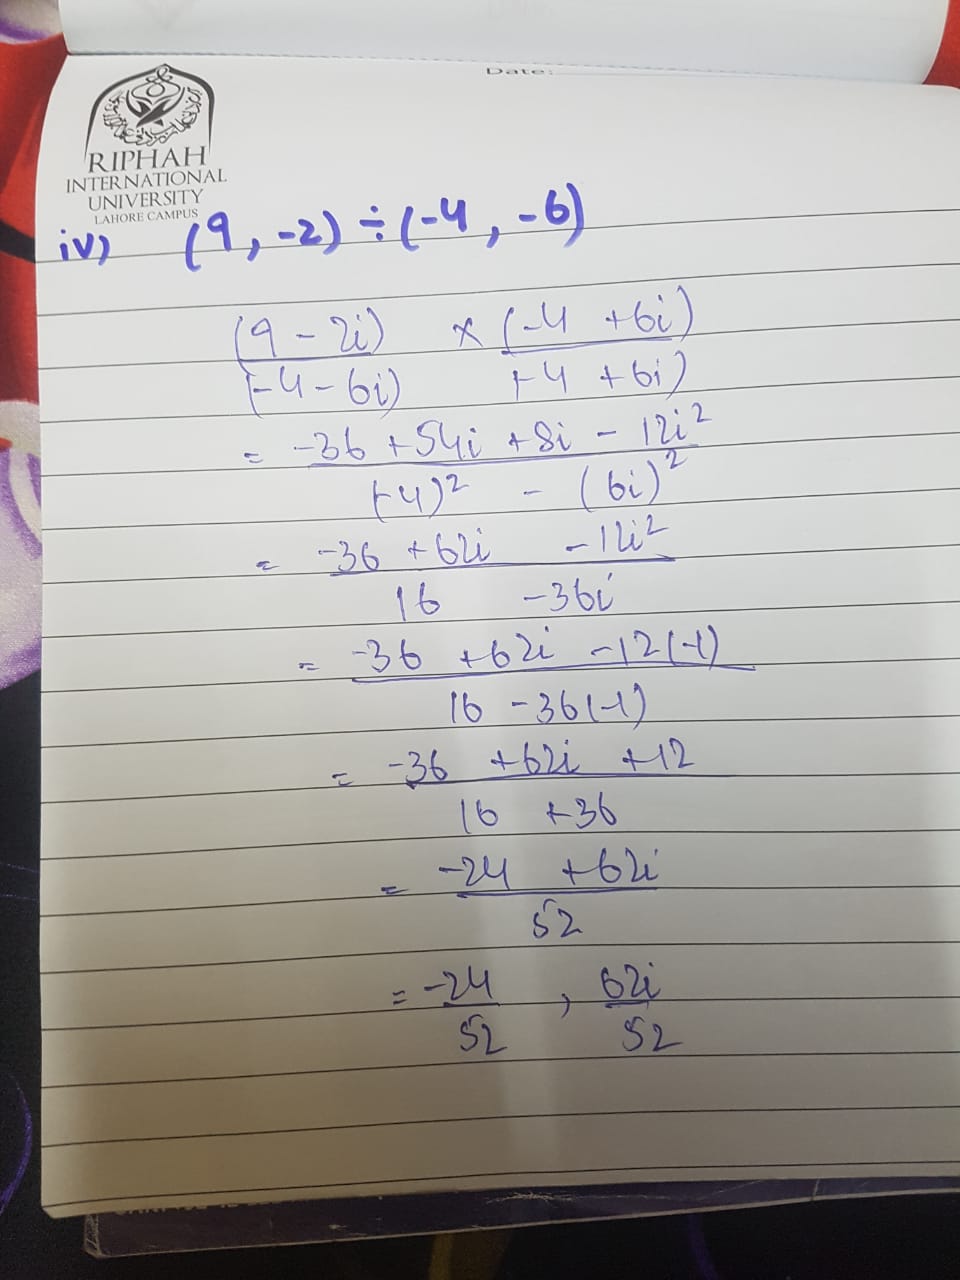 Date:
RIPHAH
INTERNATIONAL
UNIVERSITY
LAHORE CAMPUS
iv) (9, -2) ÷ (-4, -6)
(9 - 2i) × (-4 + 6i)
(-4 - 6i) (-4 + 6i)
= -36 + 54i + 8i - 12i²
(-4)² - (6i)²
= -36 + 62i - 12i²
16 - 36i
= -36 + 62i - 12(-1)
16 - 36(-1)
= -36 + 62i + 12
16 + 36
= -24 + 62i
52
= -24 , 62i
52 52